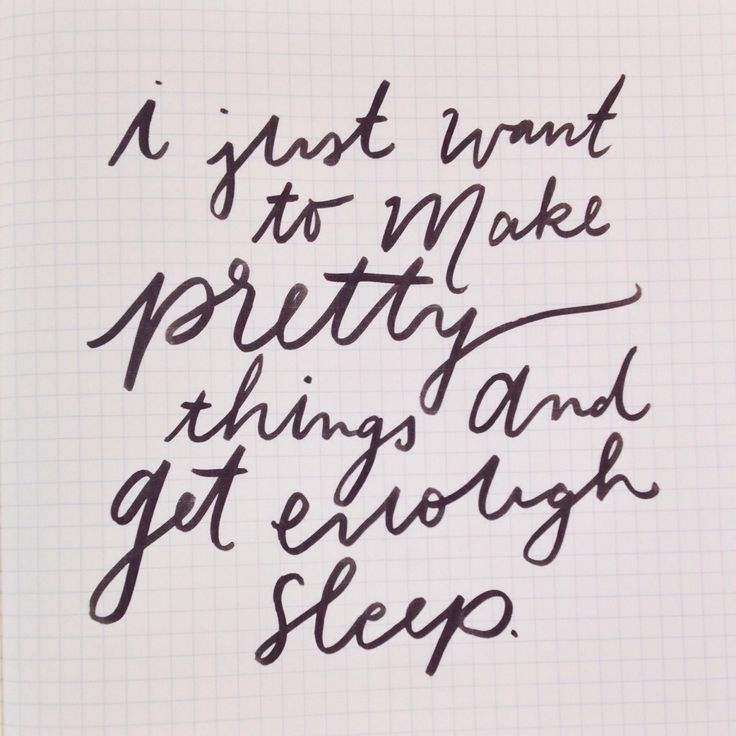 i just want
to make
pretty
things and
get enough
sleep.